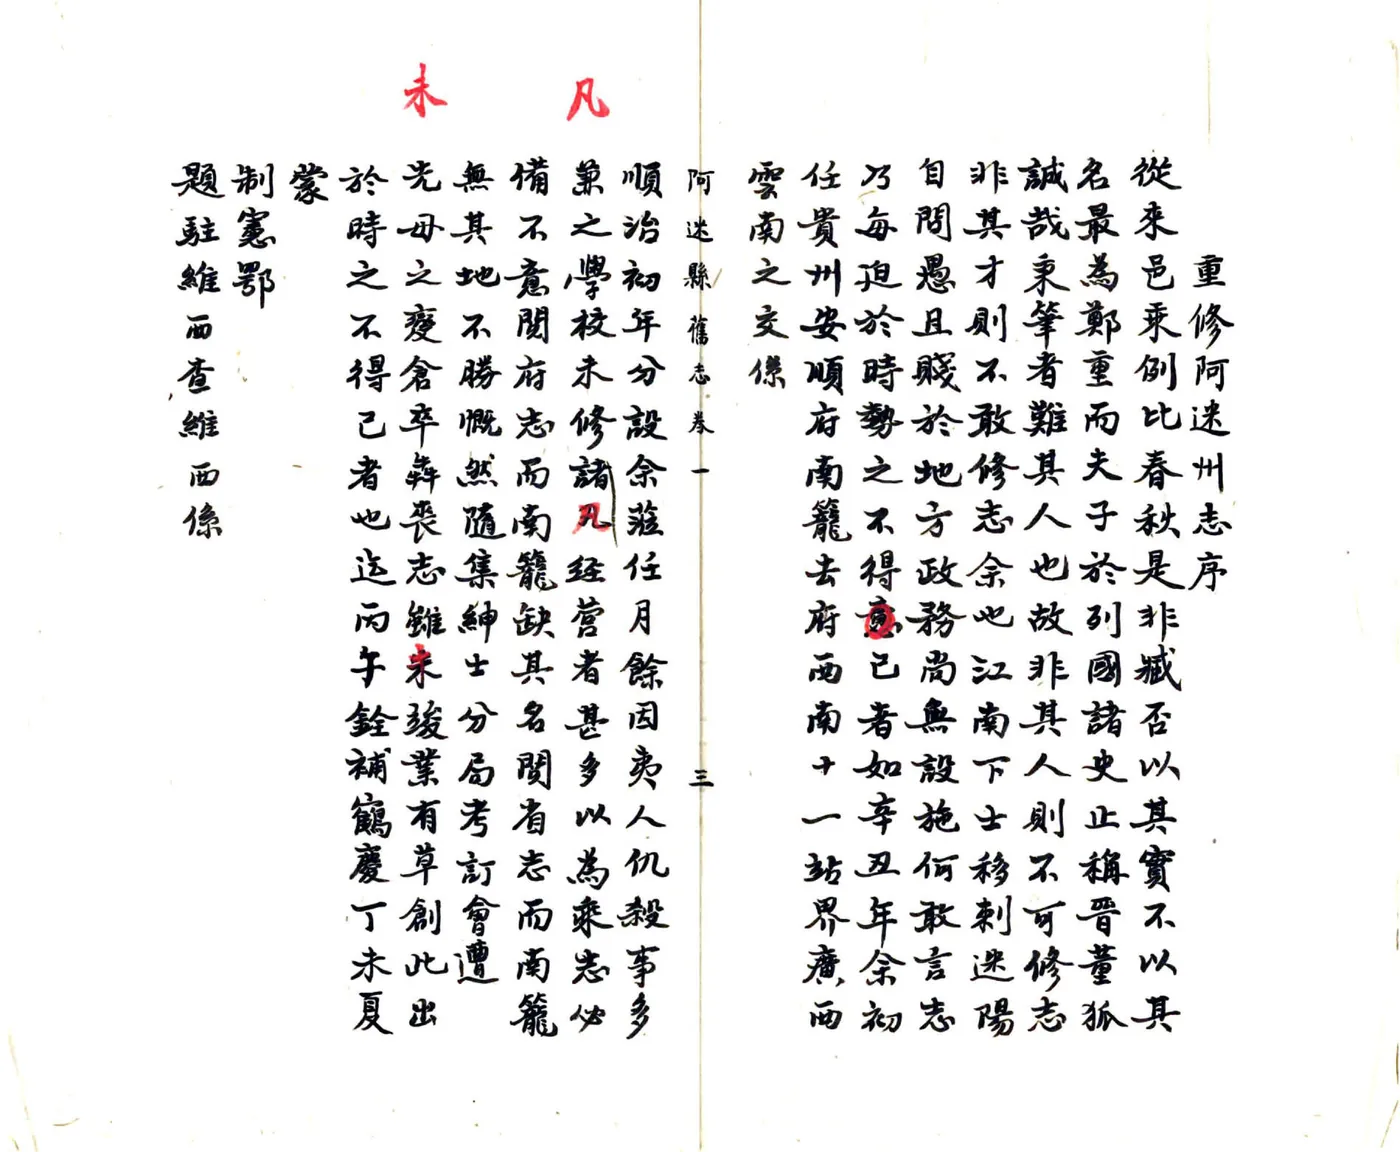 重修阿迷州志序
從來邑乘例比春秋是非臧否以其實不以其
名最為鄭重而夫子於列國諸史止稱晉董狐
誠哉秉筆者難其人也故非其人則不可修志
非其才則不敢修志余也江南下士移刺迷陽
自問愚且賤於地方政務尚無設施何敢言志
乃每迫於時勢之不得已者如辛丑年余初
任貴州安順府南籠去府西南十一站界廣西
雲南之交係
阿迷縣舊志卷一 三
順治初年分設余蒞任月餘因夷人仇殺事多
兼之學校未修諸凡經營者甚多以為乘志必
備不意閱府志而南籠缺其名閱省志而南籠
無其地不勝慨然隨集紳士分局考訂會遭
先母之變倉卒犇喪志雖未竣業有草創此出
於時之不得已者也迄丙午銓補鶴慶丁未夏
蒙
制憲鄂
題駐維西查維西係
凡
未